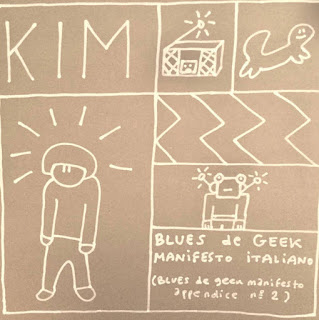 KIM
BLUES de GEEK
MANIFESTO iTALIANO
(BLUES de geek manifesto
appendice nº 2)